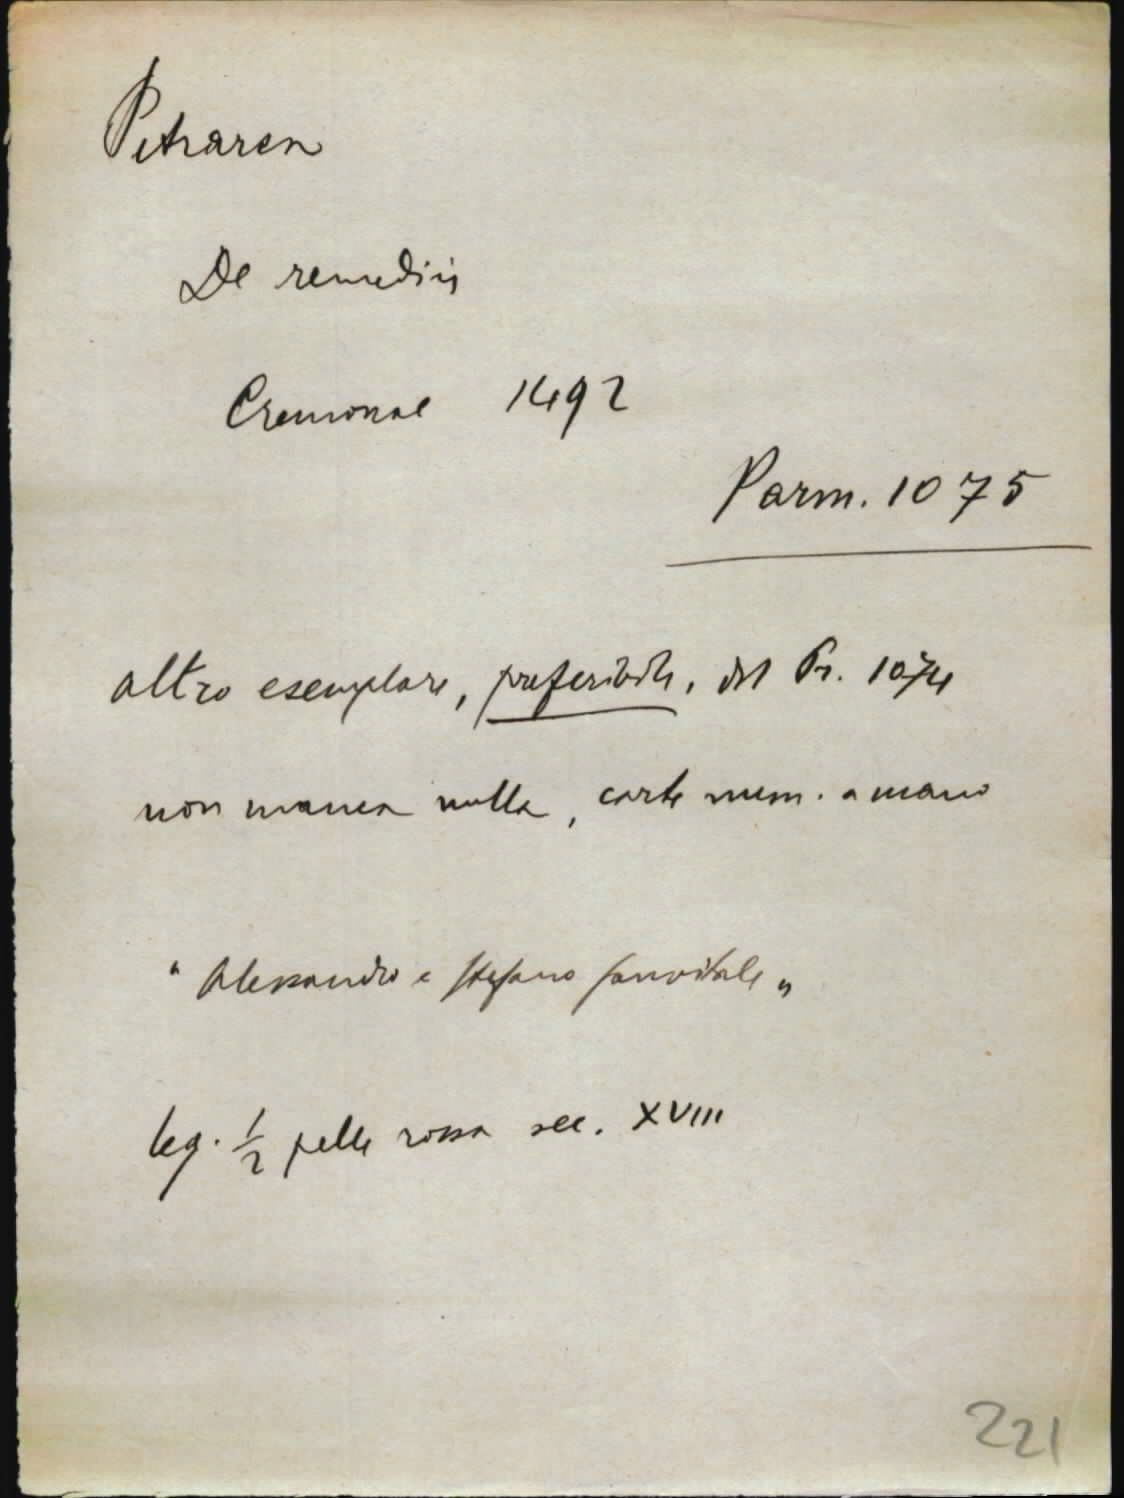 Petrarca
De remediis
Cremonae 1492
Parm. 1075
altro esemplare, preferibile, del Pr. 1074
non manca nulla, carte num. a mano
"Alessandro e Stefano Sanvitale"
leg. 1/2 pelle rossa sec. XVIII
221